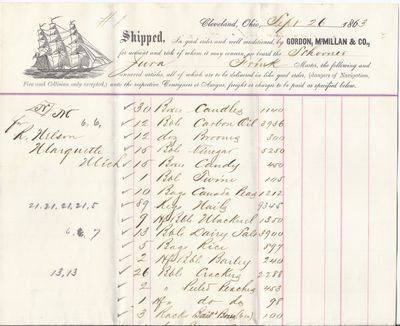 #1
Cleveland, Ohio, Sept 26 1863
Shipped, In good order and well conditioned, by GORDON, McMILLAN & CO.,
for account and risk of whom it may concern, on board the Schooner
Jura Master, the following and
annexed articles, all of which are to be delivered in like good order, (dangers of Navigation,
Fire and Collision only excepted,) unto the respective Consignees or Assigns, freight or charges to be paid as specified below.
M 30 Boxes Candles 1140
for 6,6, 12 Bbl Carbon Oil 3936
R. Nelson 12 doz Brooms 300
Marquette 15 Bbl Vinegar 5250
Mich 15 Boxes Candy 450
1 Bbl Twine 105
10 Bags Canada Peas 1212
21.21.21.21.5 89 Kegs Nails 9345
9 Hf Bbl Mackerel 1350
6.6.7 13 Bbl Dairy Salt 3900
5 Bags Rice 897
2 Hf Bbl Barley 240
13,13 26 Bbl Crackers 2288
2 " Peaches 453
1 Hf do do 98
3